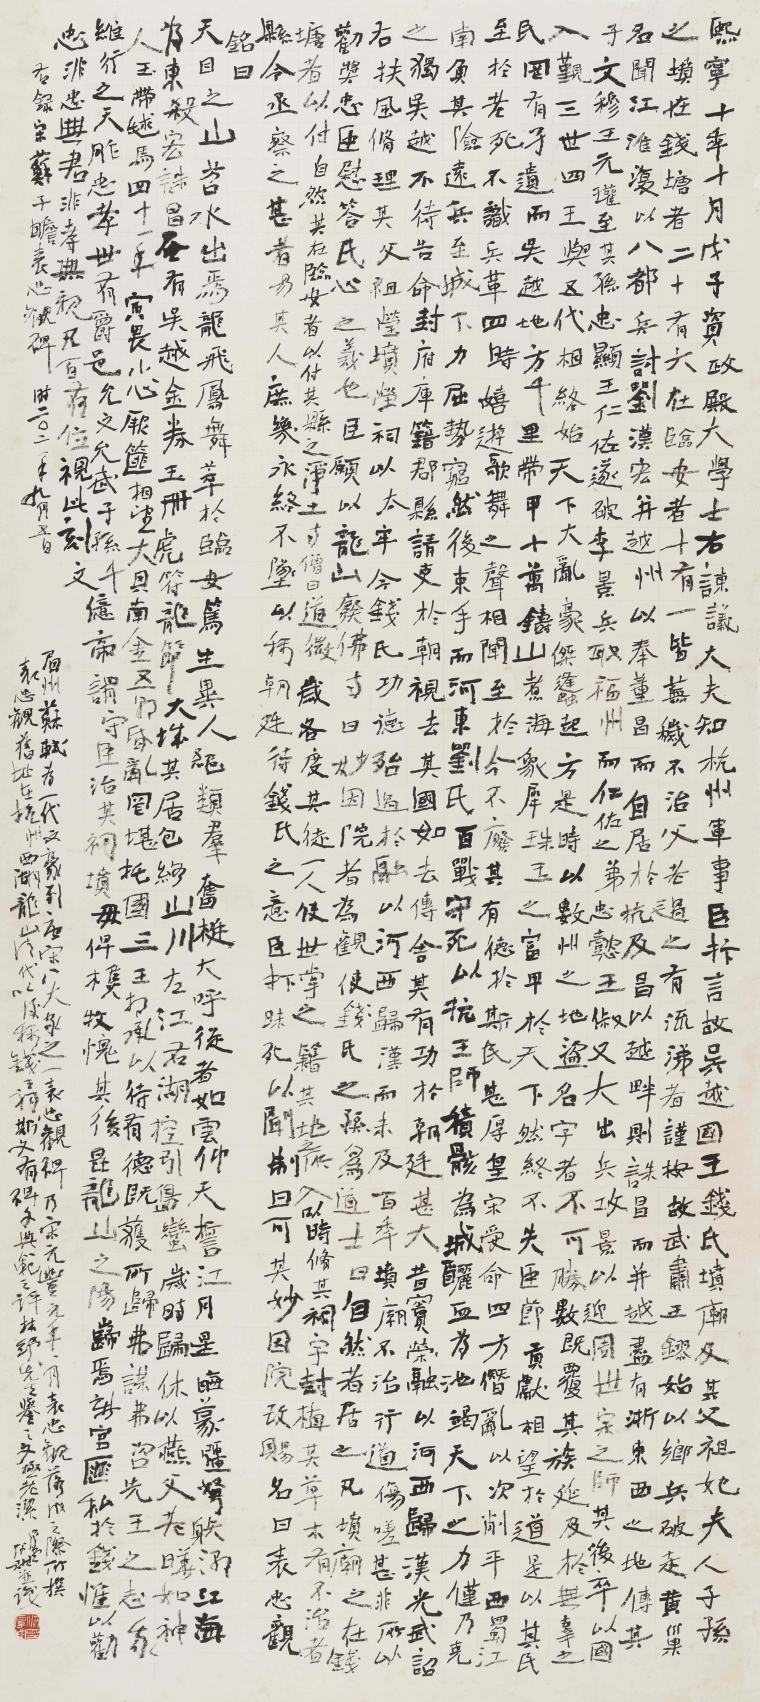 熙寧十年十月戊子資政殿大學士右諫議大夫知杭州軍事臣抃言故吳越國王錢氏墳廟及其父祖妃夫人子孫
之墳在錢塘者二十有六在臨安者十有一皆蕪穢不治父老過之有流涕者謹按故武肅王鏐始以鄉兵破走黃巢
名聞江淮復以八都兵討劉漢宏并越州以奉董昌而自居於杭及昌以越畔則誅昌而并越盡有浙東西之地傳其
子文穆王元瓘至其孫忠顯王仁佐遂破李景兵取福州而仁佐之弟忠懿王俶又大出兵攻景以迎周世宗之師其後卒以國
入覲三世四王與五代相終始天下大亂豪傑蠭起方是時以數州之地盜名字者不可勝數既覆其族延及於無辜之
民罔有孑遺而吳越地方千里帶甲十萬鑄山煮海象犀珠玉之富甲於天下然終不失臣節貢獻相望於道是以其民
至於老死不識兵革四時嬉遊歌舞之聲相聞至於今不廢其有德於斯民甚厚皇宋受命四方僭亂以次削平西蜀江
南負其險遠兵至城下力屈勢窮然後束手而河東劉氏百戰守死以抗王師積骸為城釃血為池竭天下之力僅乃克
之獨吳越不待告命封府庫籍郡縣請吏於朝視去其國如去傳舍其有功於朝廷甚大昔竇榮融以河西歸漢光武詔
右扶風脩理其父祖塋墳塋祠以太牢今錢氏功德殆過於融以河西歸漢而未及百年墳廟不治行道傷嗟甚非所以
勸獎忠臣慰答民心之義也臣願以龍山廢佛寺曰妙因院者為觀使錢氏之孫為道士曰自然者居之凡墳廟之在錢
塘者以付自然其在臨安者以付其縣之淨土寺僧曰道微歲各度其徒一人使世掌之籍其地之所入以時脩其祠宇封植其草木有不治者
縣令丞察之甚者易其人庶幾永終不墜以稱朝廷待錢氏之意臣抃昧死以聞制曰可其妙因院改賜名曰表忠觀
銘曰
天目之山苕水出焉龍飛鳳舞萃於臨安篤生異人絕類群奮梃大呼從者如雲仰天誓江月星晦蒙彊弩射潮江海
為東殺宏誅昌奄有吳越金券玉冊虎符龍節大城其居包絡山川左江右湖控引島蠻歲時歸休以燕父老曄如神
人玉帶毬馬四十一年寅畏小心厥篚相望大貝南金五朝昏亂罔堪托國三王相承以待有德既獲所歸弗謀弗咨先王之志我
維行之天胙忠孝世有爵邑允文允武子孫千億帝謂守臣治其祠墳毋俾樵牧愧其後昆龍山之陽巋焉新宮匪私於錢惟以勸
忠非忠無君非孝無親凡百有位視此刻文
右錄宋蘇子瞻表忠觀碑 時二〇二一年九月五日
眉州蘇軾者一代文豪列唐宋八大家之一表忠觀碑乃宋元豐元年八月表忠觀落成之際所撰
表忠觀舊址在杭州西湖龍山清代以後稱錢王祠斯文有碑文典範之評